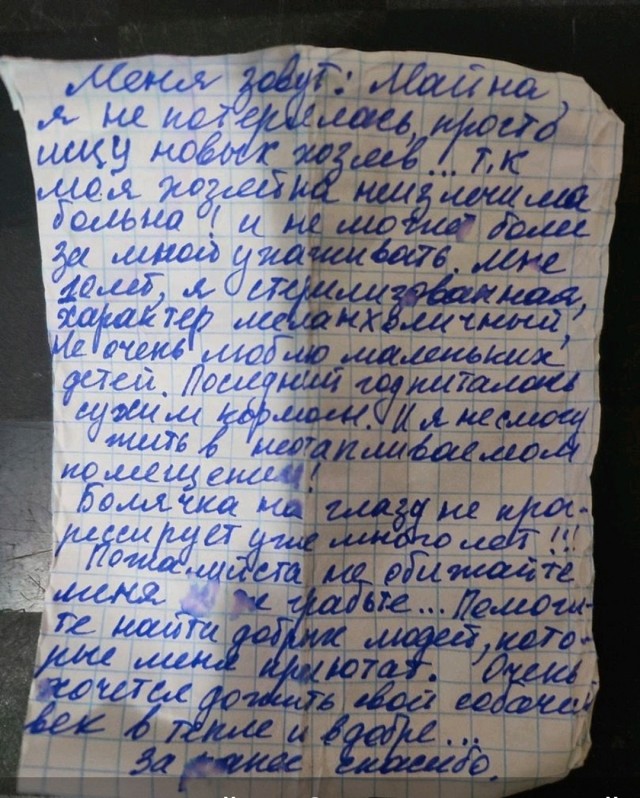 Меня зовут: Майна,
я не потерялась, просто
ищу новых хозяев... т.к
моя хозяйка неизлечима
больна! и не может боле
за мной ухаживать, мне
10 лет, я стерилизованная,
характер меланхоличный,
не очень люблю маленьких
детей. Последний год питалась
сухим кормом. И я не смогу
жить в неотапливаемом
помещении!
Болячка на глазу не прог-
рессирует уже много лет!!!
Пожалуйста не обижайте
меня грабьте... Помоги-
те найти добрых людей, кото-
рые меня приютят. Очень
хочется дожить свой собачий
век в тепле и в добре...
За ранее спасибо.